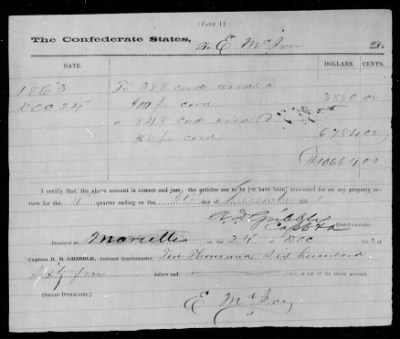 (FORM 12.)
The Confederate States,
To E McIver Dr.
DATE. DOLLARS. CENTS.
1863 To 388 cords wood @
Dec 24 $10 per cord 3880 00
" 848 cords wood @
$8 per cord 6784 00
$10664 00
I certify that the above amount is correct and just; the articles are to be (or have been) accounted for on my property
return for the 4 quarter ending on the 31 day of December 1863
R D Gribble
Capt &
Quartermaster.
Received at Marietta the 24 of Dec
Captain R. D. GRIBBLE, Assistant Quartermaster, Ten Thousand Six hundred
Sixty four dollars and cents, in full of the above account.
(SIGNED DUPLICATES.)
E McIver